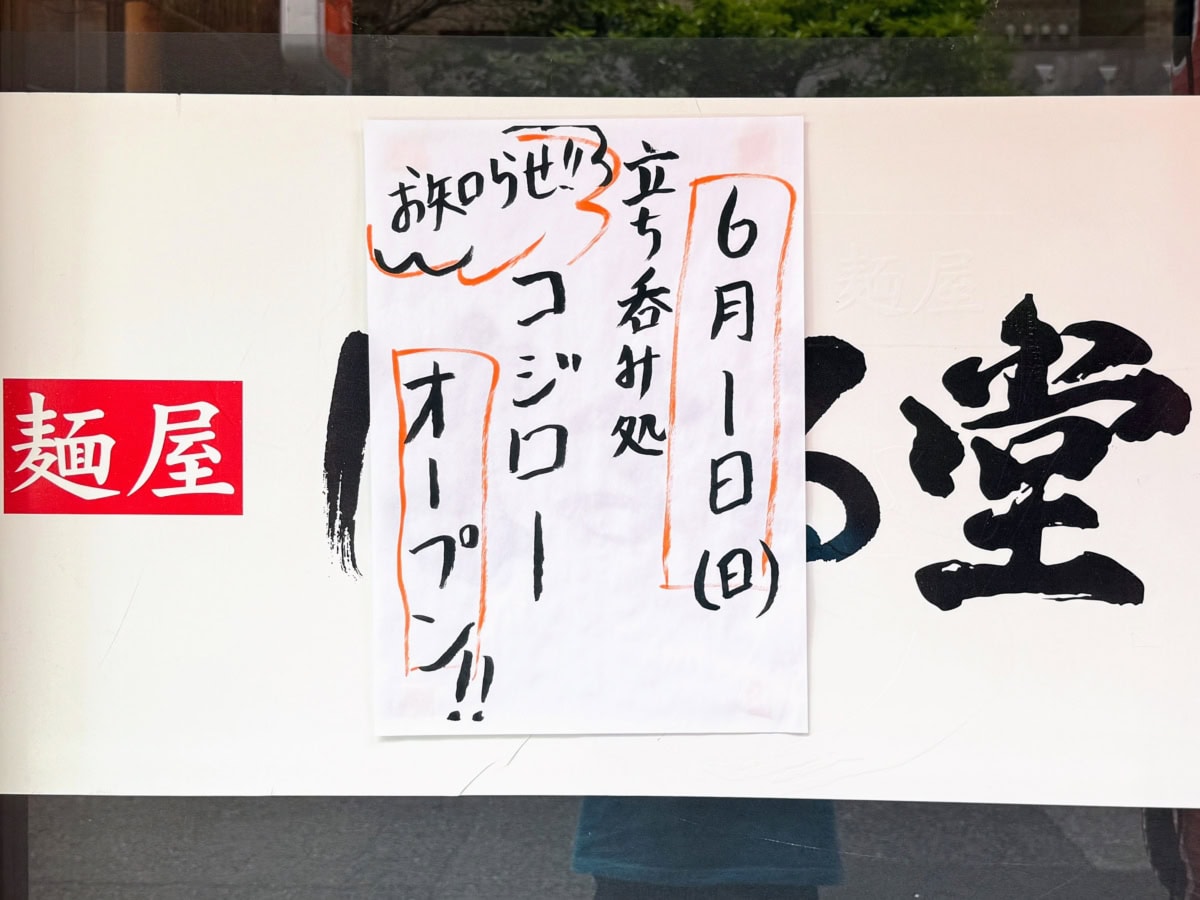 お知らせ!!
6月1日(日)
立ち呑み処
コジロー
オープン!!
麺屋
堂